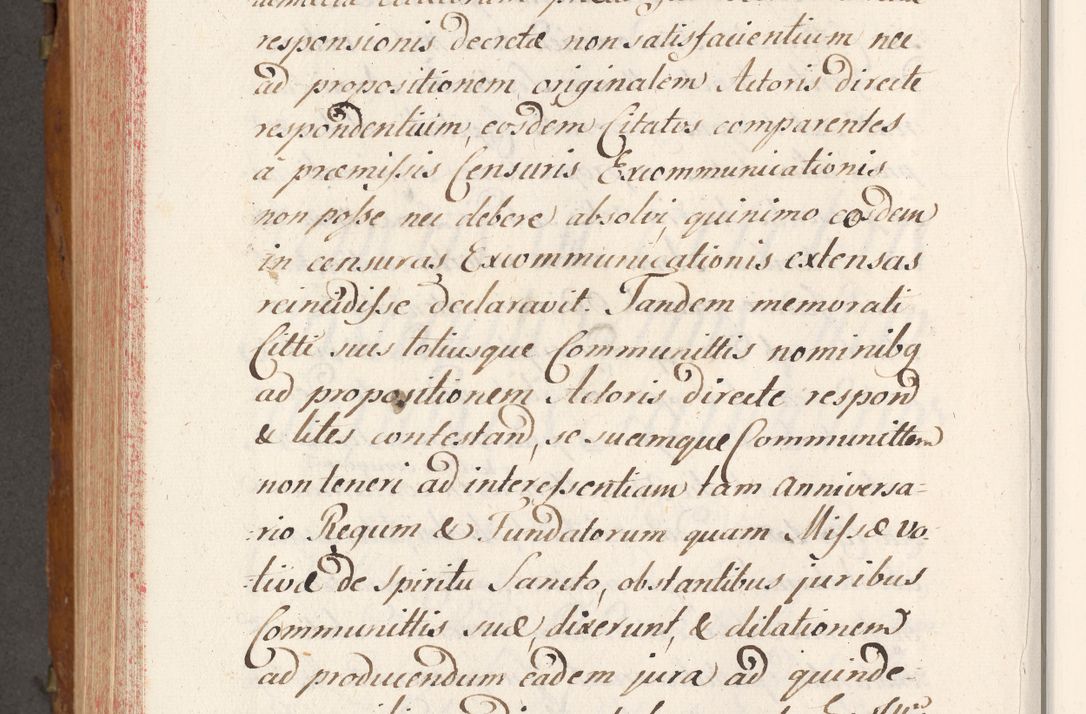 responsionis decretæ non satisfacientium nec
ad propositionem originalem Actoris directe
respondentium, eosdem Citatos comparentes
à præmissis Censuris Excommunicationis
non posse nec debere absolvi, quinimo eosdem
in censuras Excommunicationis extensas
reincidisse declaravit. Tandem memorati
Citti suis totiusque Communittis nominibq
ad propositionem Actoris directe respond
& lites contestand, se suamque Communittem
non teneri ad interessentiam tam Anniversa=
=rio Regum & Fundatorum quam Missæ vo=
tivæ de Spiritu Sancto, obstantibus juribus
Communittis suæ, dixerunt, & dilationem
ad producendum eadem jura ad quinde=